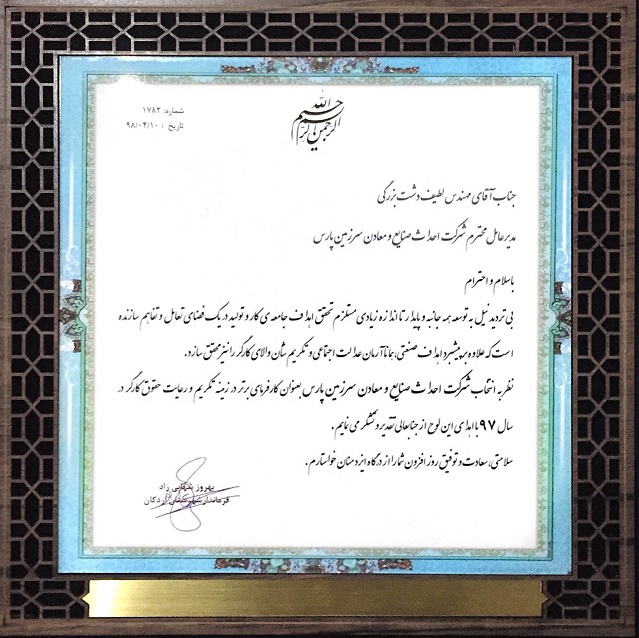 بسم الله الرحمن الرحیم
شماره: ۱۷۸۲
تاریخ : ۹۸/۰۴/۱۰
جناب آقای مهندس لطیف دشت بزرگی
مدیرعامل محترم شرکت احداث صنایع و معادن سرزمین پارس
باسلام و احترام
بی تردید نیل به توسعه همه جانبه و پایدار تا اندازه زیادی مستلزم تحقق اهداف جامعه ی کار و تولید در یک فضای تعامل و تفاهم سازنده
است که علاوه بر پیشبرد اهداف صنعتی، همانا آرمان عدالت اجتماعی و تکریم شأن والای کارگر را نیز محقق سازد.
نظر به انتخاب شرکت احداث صنایع و معادن سرزمین پارس بعنوان کارفرمای برتر در زمینه تکریم و رعایت حقوق کارگر در
سال ۹۷ با اهدای این لوح از جنابعالی تقدیر و تشکر می نمایم.
سلامتی، سعادت و توفیق روز افزون شما را از درگاه ایزد منان خواستارم.
بهروز زاد
فرماندار شهرستان اردکان